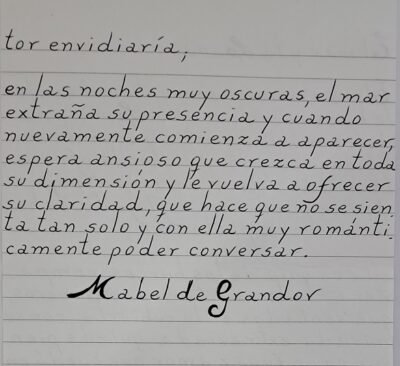 tor envidiaría;
en las noches muy oscuras, el mar
extraña su presencia y cuando
nuevamente comienza a aparecer,
espera ansioso que crezca en toda
su dimensión y le vuelva a ofrecer
su claridad, que hace que no se sien
ta tan solo y con ella muy románti-
camente poder conversar.
Mabel de Grandov